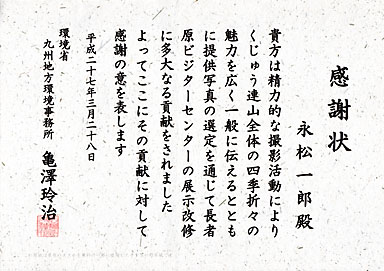 感謝状
永松一郎殿
貴方は精力的な撮影活動により
くじゅう連山全体の四季折々の
魅力を広く一般に伝えるととも
に提供写真の選定を通じて長者
原ビジターセンターの展示改修
に多大なる貢献をされました
よってここにその貢献に対して
感謝の意を表します
平成二十七年三月二十八日
環境省
九州地方環境事務所 亀澤玲治